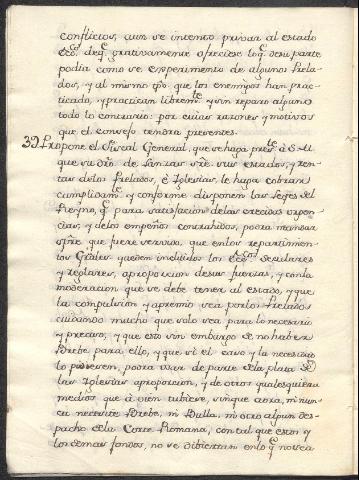 conflictos, aun se intentó privar al estado
ecc.º de q.e gratuitamente ofreciese lo q.e de su parte
podia como se experimentó de algunos Prela-
dos, y al mismo tpo. que los enemigos han prac-
ticado, y practican librem.te y sin reparo alguno
todo lo contrario: por cuias razones y motivos
que el consejo tendra presentes.
39 Propone el Fiscal General, que se haga pres.te à S. M
que su dro. de lanzas sre. sus estados, y ren-
tas de los Prelados, è Iglesias, le haga cobrar
cumplidam.te y conforme disponen las Leyes del
Reyno, q.e para satisfacion de las crecidas urgen-
cias, y de los empeños contrahidos, podra mandar
spre. que fuere servido, que en los repartimien-
tos Grales. queden incluidos los Ecc.cos seculares
y reglares, à proporcion de sus fuerzas, y con la
moderacion que se debe tener al estado, y que
la compulsion y apremio sea por los Prelados
cuidando mucho que solo sea para lo necesario
y preciso, y que esto sin embargo de no haber
Brebe para ello, y que si el caso y la necesidad
lo pidiesen, podra usar de parte de la plata de
las Iglesias à proporcion, y de otros qualesquiera
medios que à bien tubiere, sin que aora, ni nun-
ca necesite Brebe, ni Bulla, ni otro algun des-
pacho de la Corte Romana, con tal que estos y
los demas fondos, no se dibiertan en lo q.e no sea